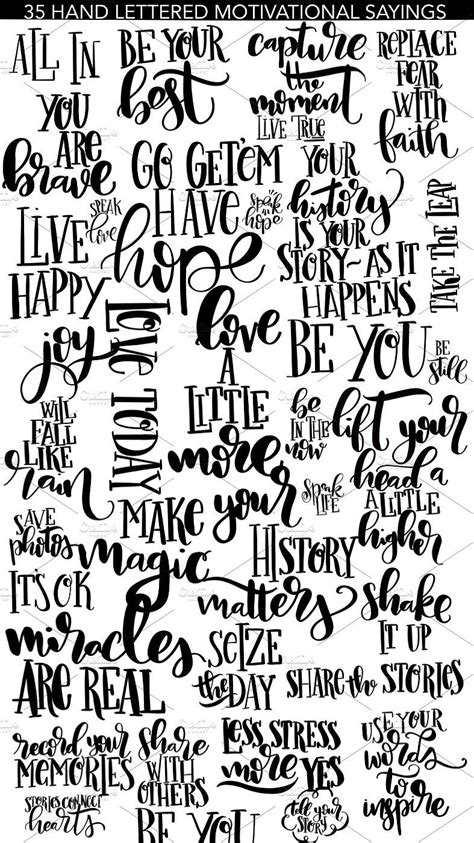 35 HAND LETTERED MOTIVATIONAL SAYINGS
ALL IN
BE YOUR
best
capture
the
moment
REPLACE
FEAR
WITH
faith
YOU
ARE
brave
LIVE TRUE
GO GET'EM
YOUR
history
IS YOUR
STORY~AS IT
HAPPENS
TAKE THE LEAP
LIVE
HAPPY
SPEAK
love
HAVE
hope
speak
hope
LOVE TODAY
love
A
LITTLE
more
BE YOU
BE
still
joy
WILL
FALL
LIKE
rain
be
IN THE
now
lift your
head
A LITTLE
higher
Speak
LIFE
MAKE your
magic
SAVE
photos
IT'S OK
HISTORY
matters
shake
IT UP
miracles
ARE REAL
SEIZE
the DAY
SHARE the STORIES
record your
MEMORIES
share
WITH
OTHERS
LESS STRESS
more YES
USE YOUR
words
to
inspire
STORIES CONNECT
hearts
BE YOU
tell your
STORY